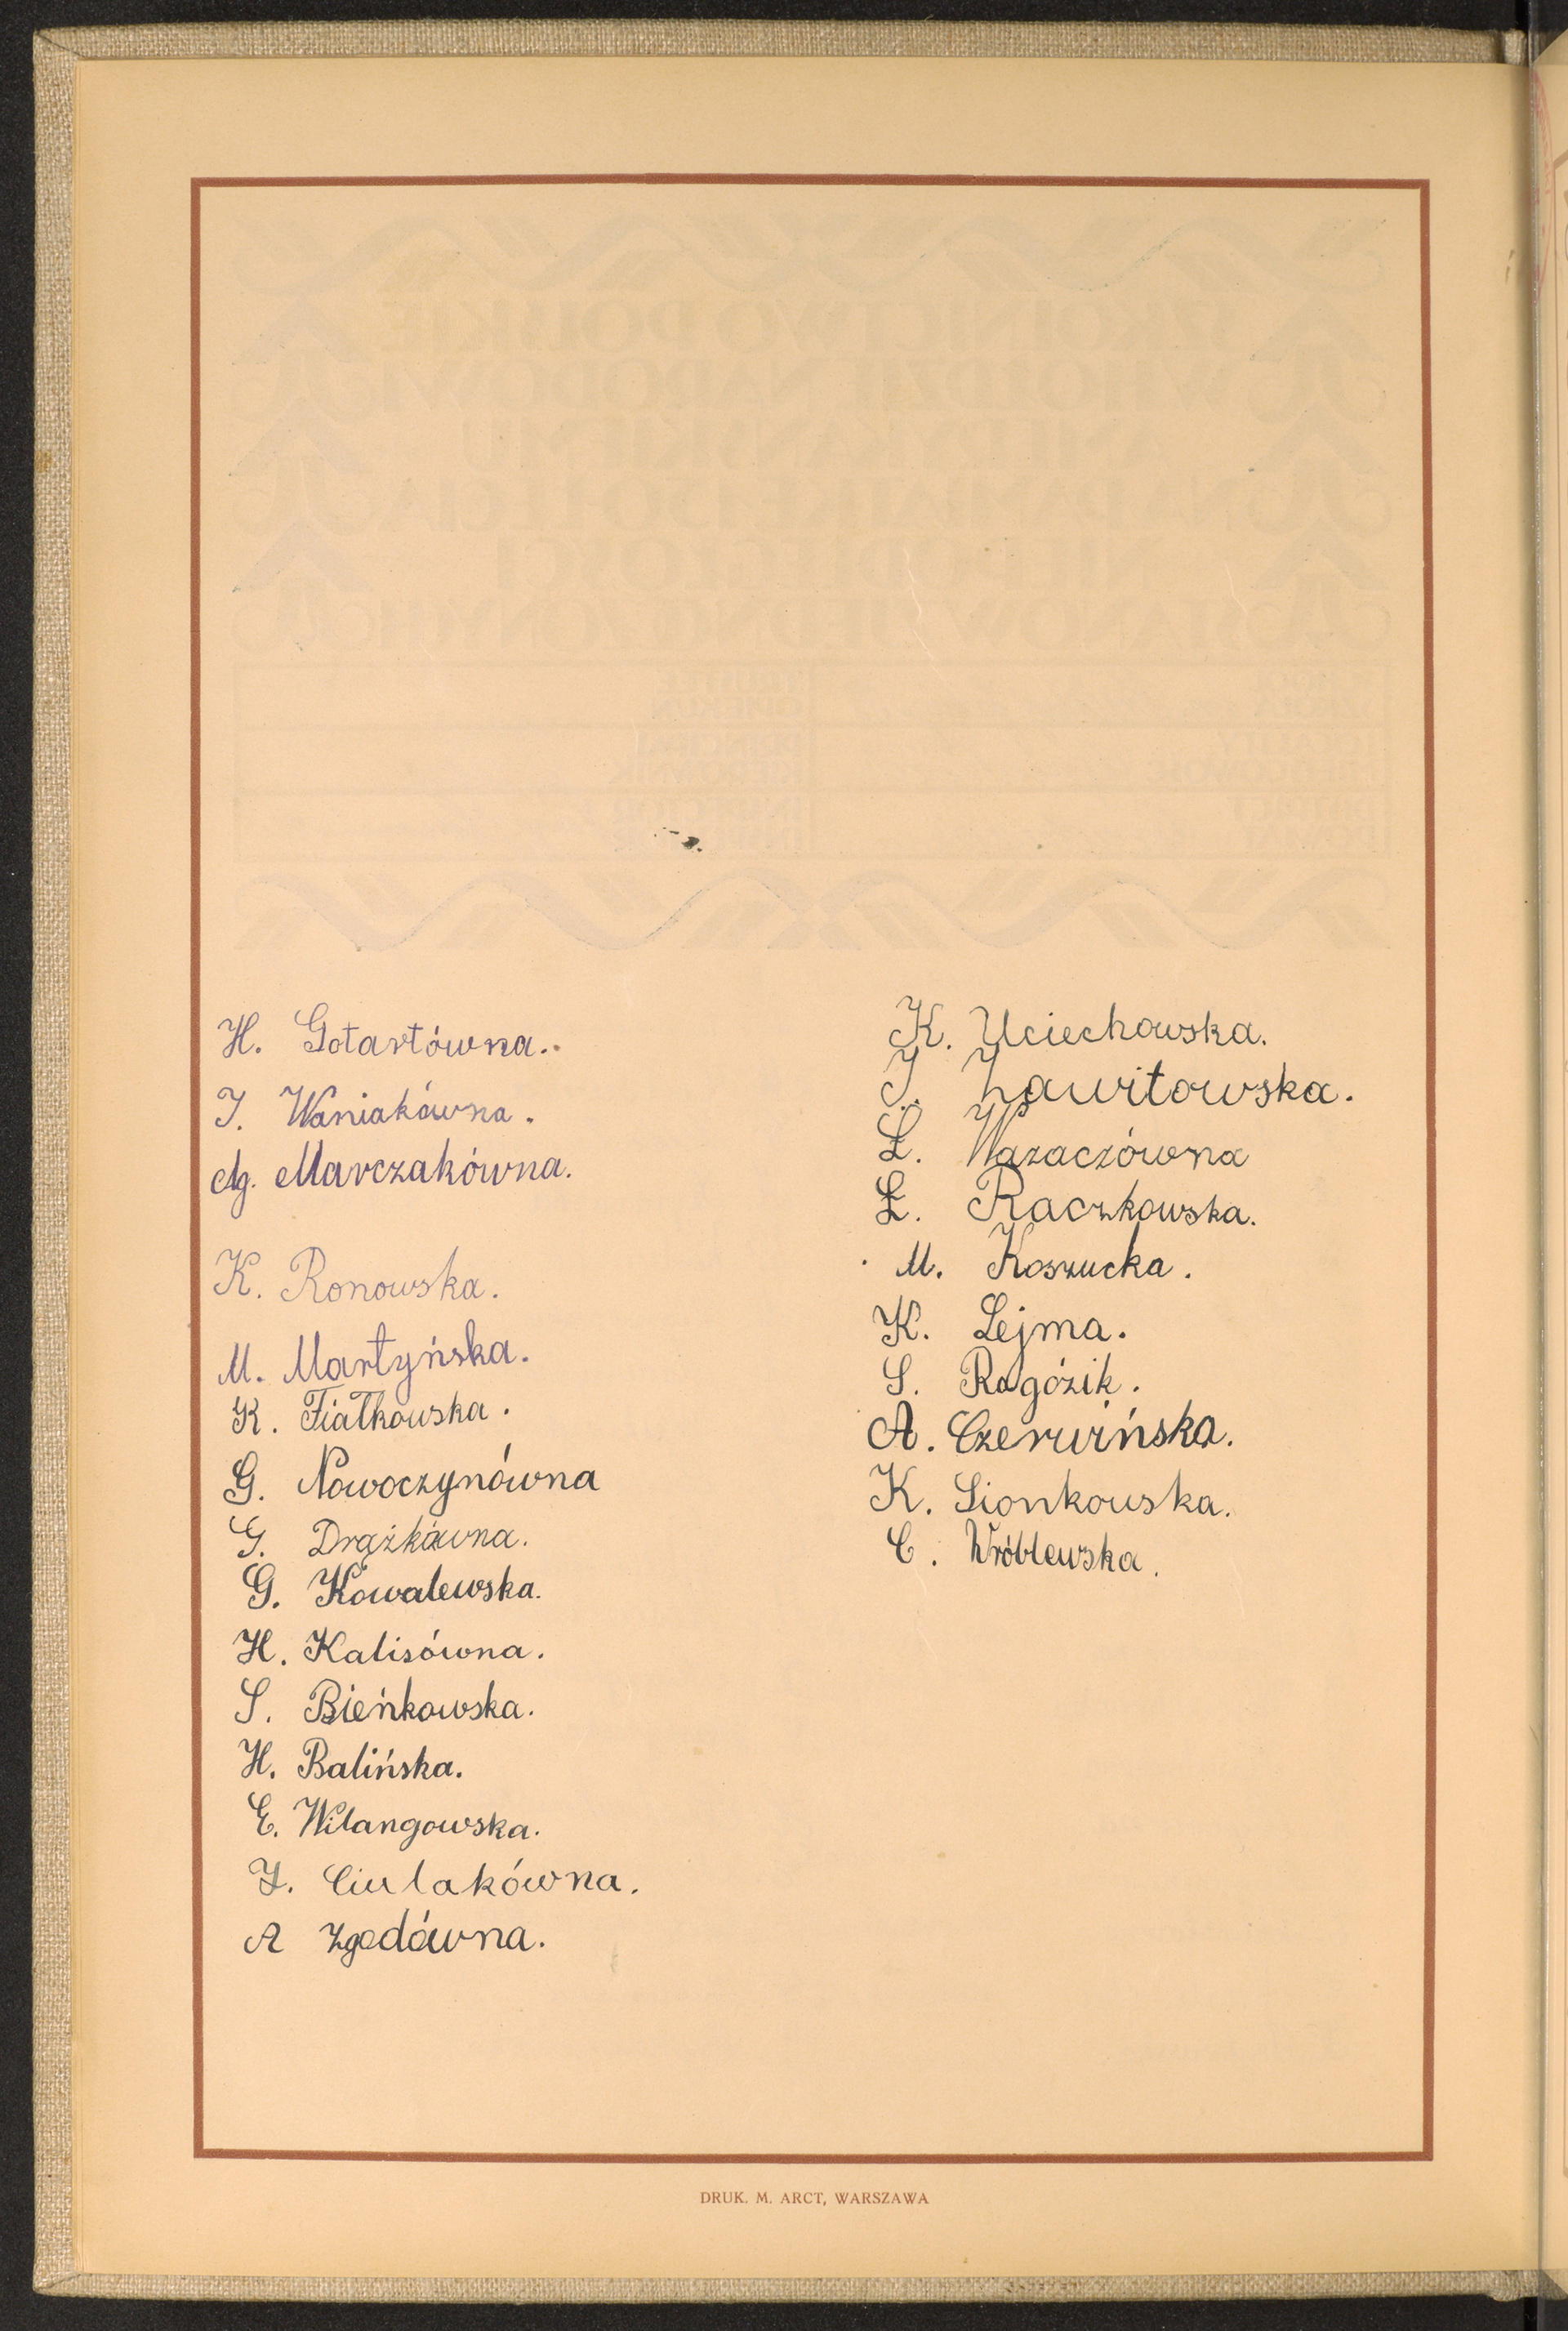 H. Gotartówna.
J. Waniakówna.
M. Marczakówna.
K. Ronowska.
M. Martyńska.
K. Fiałkowska.
G. Nowoczynówna
G. Drążkówna.
G. Kowalewska.
H. Kalisówna.
S. Bieńkowska.
H. Balińska.
E. Wilangowska.
Z. Ciulakówna.
A Zgodówna.
K. Uciechowska.
J. Zawitowska.
Ł. Wazaczówna
Ł. Raczkowska.
M. Koszucka.
K. Lejma.
S. Rogózik.
A. Czerwińska.
K. Sionkowska.
C. Wróblewska.
DRUK. M. ARCT, WARSZAWA